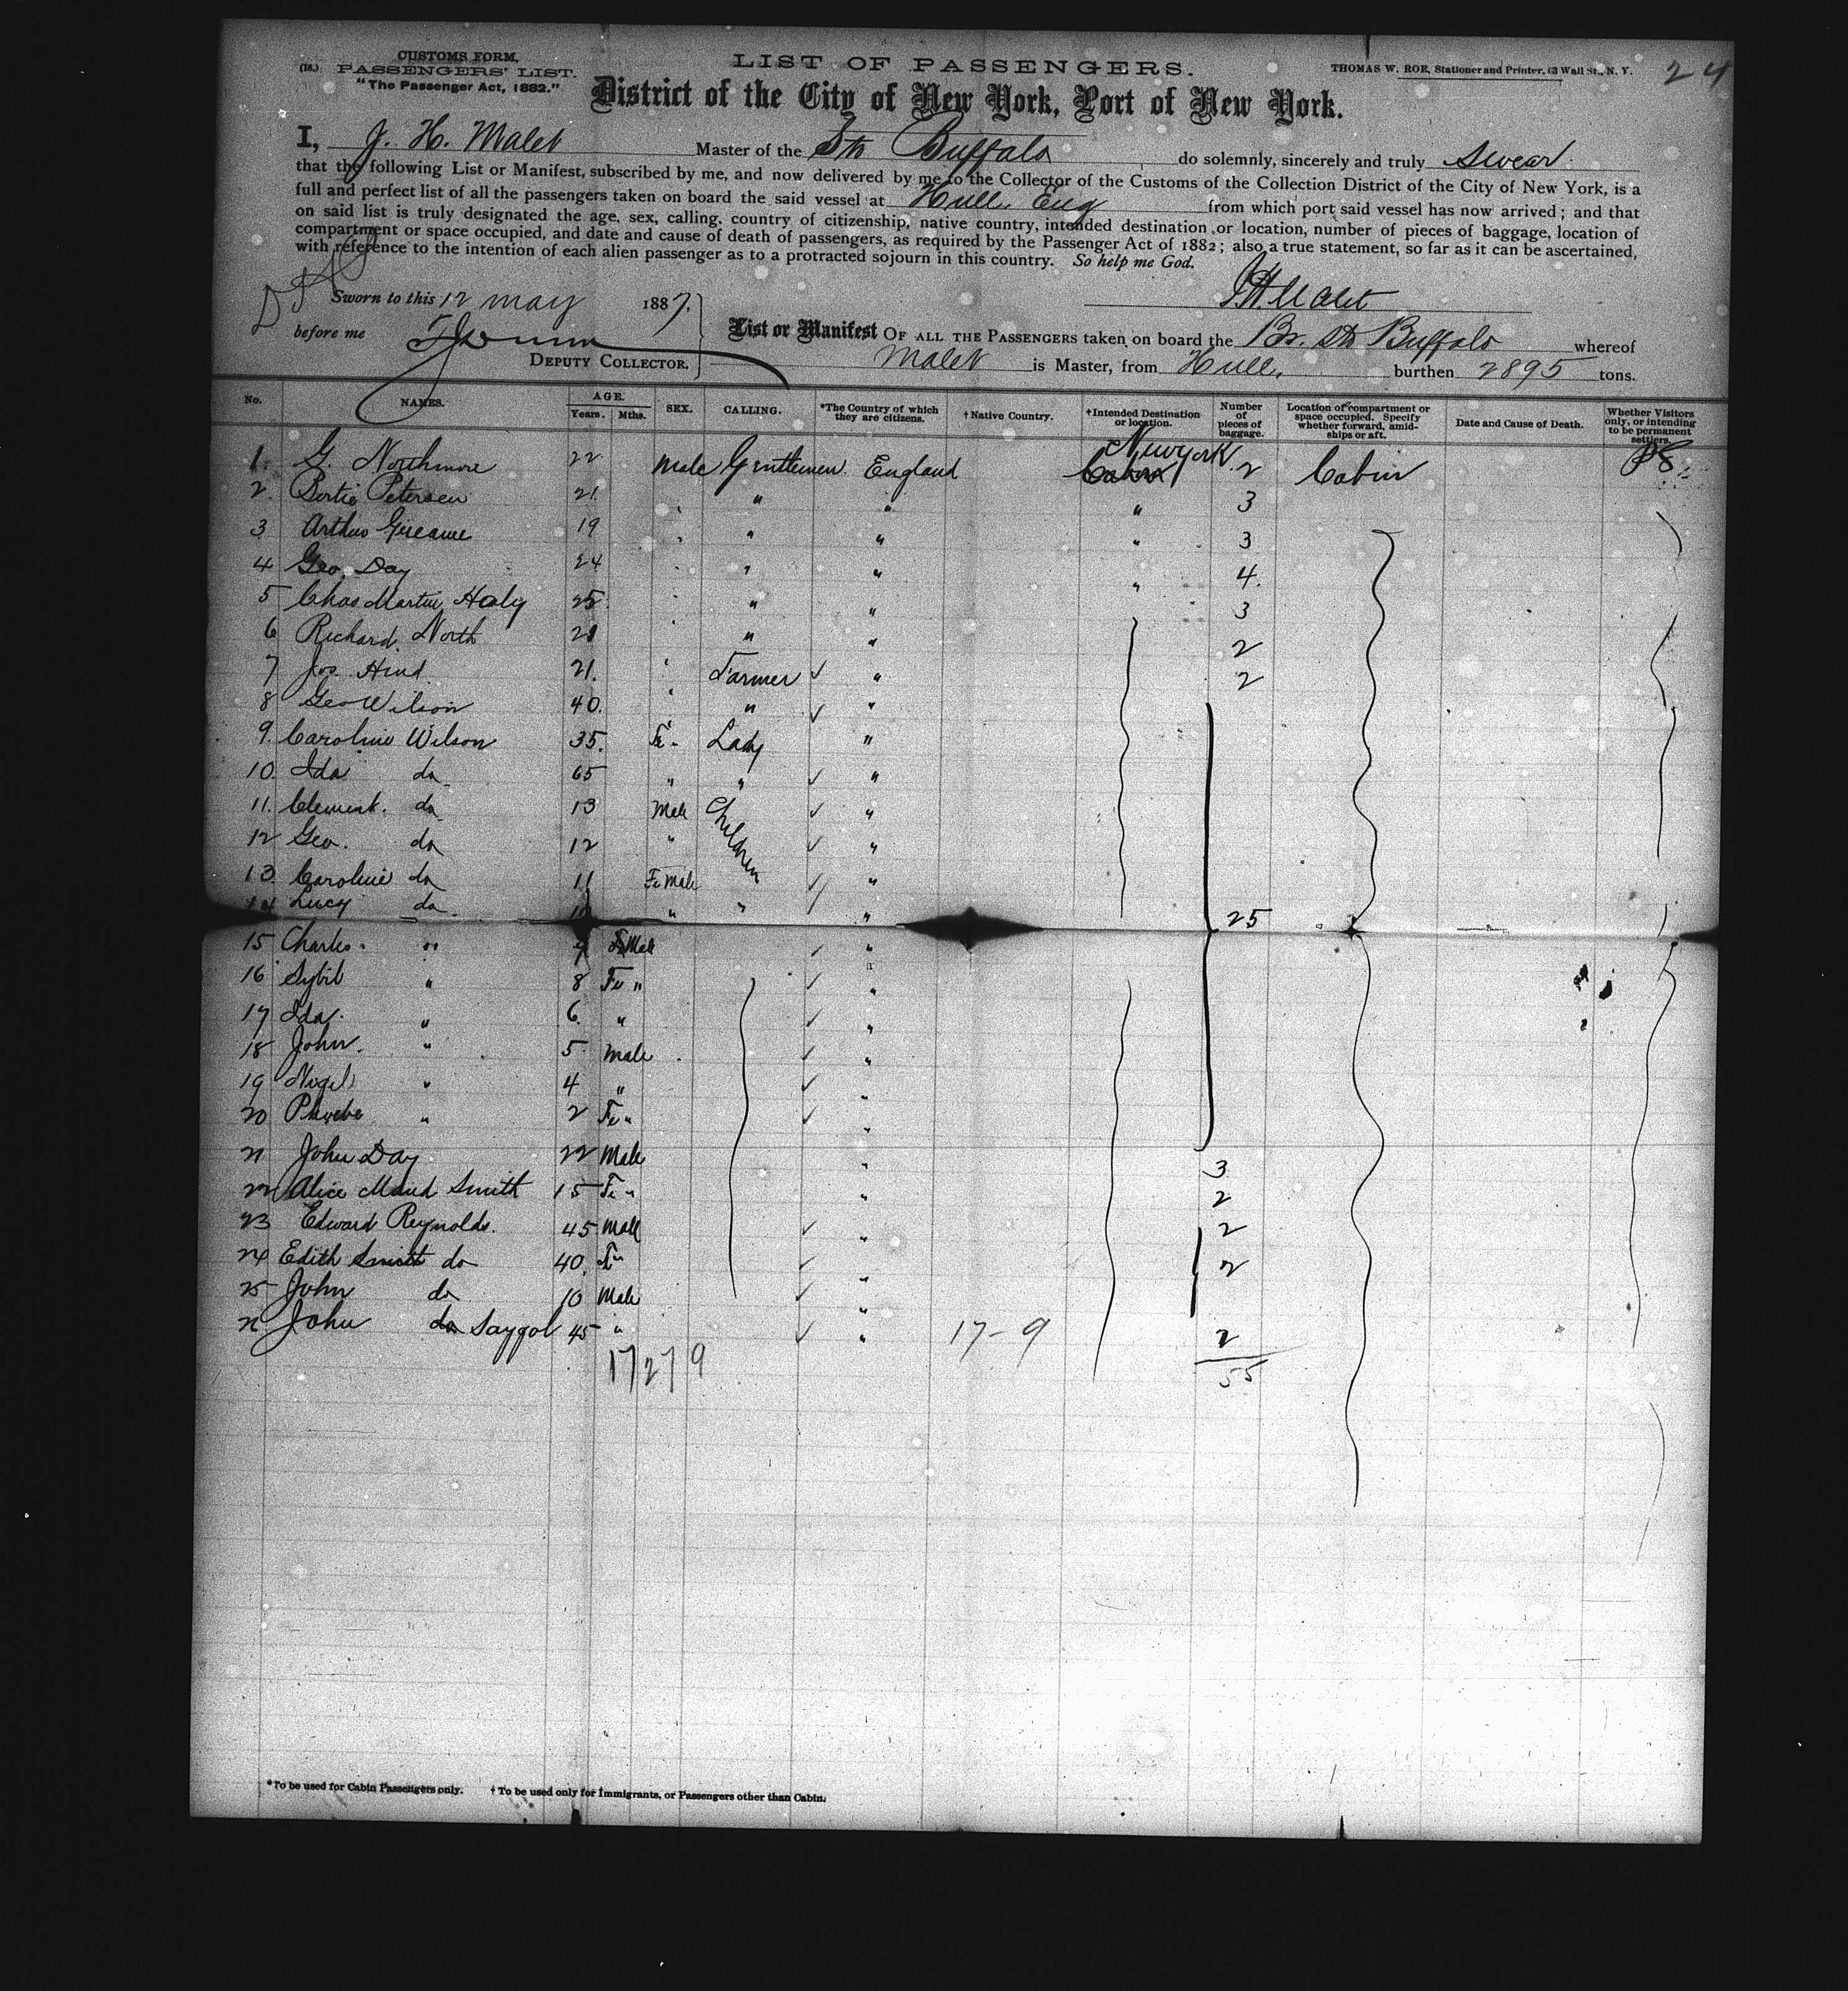 CUSTOMS FORM,
(18.) PASSENGERS' LIST.
"The Passenger Act, 1882."
LIST OF PASSENGERS.
THOMAS W. ROE, Stationer and Printer, 63 Wall St., N. Y.
24
District of the City of New York, Port of New York.
I, J. H. Malet Master of the Str Buffalo do solemnly, sincerely and truly swear
that the following List or Manifest, subscribed by me, and now delivered by me to the Collector of the Customs of the Collection District of the City of New York, is a
full and perfect list of all the passengers taken on board the said vessel at Hull, Eng from which port said vessel has now arrived; and that
on said list is truly designated the age, sex, calling, country of citizenship, native country, intended destination or location, number of pieces of baggage, location of
compartment or space occupied, and date and cause of death of passengers, as required by the Passenger Act of 1882; also a true statement, so far as it can be ascertained,
with reference to the intention of each alien passenger as to a protracted sojourn in this country. So help me God.
Sworn to this 12 may 1887.
JH Malet
before me
DEPUTY COLLECTOR.
List or Manifest OF ALL THE PASSENGERS taken on board the Br. Str Buffalo whereof
Malet is Master, from Hull, burthen 2895 tons.
No. NAMES. AGE. Years. Mths. SEX. CALLING. *The Country of which they are citizens. †Native Country. †Intended Destination or location. Number of pieces of baggage. Location of compartment or space occupied. Specify whether forward, amidships or aft. Date and Cause of Death. Whether Visitors only, or intending to be permanent settlers.
1. G. Northmore 22 Male Gentlemen England New york 2 Cabin
2. Bertie Petersen 21. " " " 3
3 Arthur Greame 19 " " " 3
4 Geo. Day 24 " " " 4.
5 Chas Martin Haly 25 " " 3
6 Richard North 21 " " 2
7 Jos. Hind 21. Farmer ✓ " 2
8 Geo Wilson 40. " ✓ "
9. Caroline Wilson 35. Fe " Lady "
10. Ida do 65 " " ✓ "
11. Clement. do 13 Male Children ✓ "
12 Geo. do 12 " ✓ "
13. Caroline do 11 Fe Male ✓ "
14 Lucy do " " "
25
15 Charles " Male ✓ "
16 Sybil " 8 Fe " ✓ "
17 Ida. " 6. " ✓ "
18 John. " 5 Male ✓ "
19 Nigel " 4 " ✓ "
20 Phoebe " 2 Fe " ✓ "
21 John Day 22 Male " 3
22 Alice Maud Smith 15 Fe " " 2
23 Edward Reynolds. 45 Male ✓ " 2
24 Edith Smith do 40. Fe " ✓ " 2
25 John do 10 Male ✓ "
John do Saygol 45 " ✓ " 17-9 2
17 27 9
55
*To be used for Cabin Passengers only. † To be used only for Immigrants, or Passengers other than Cabin.